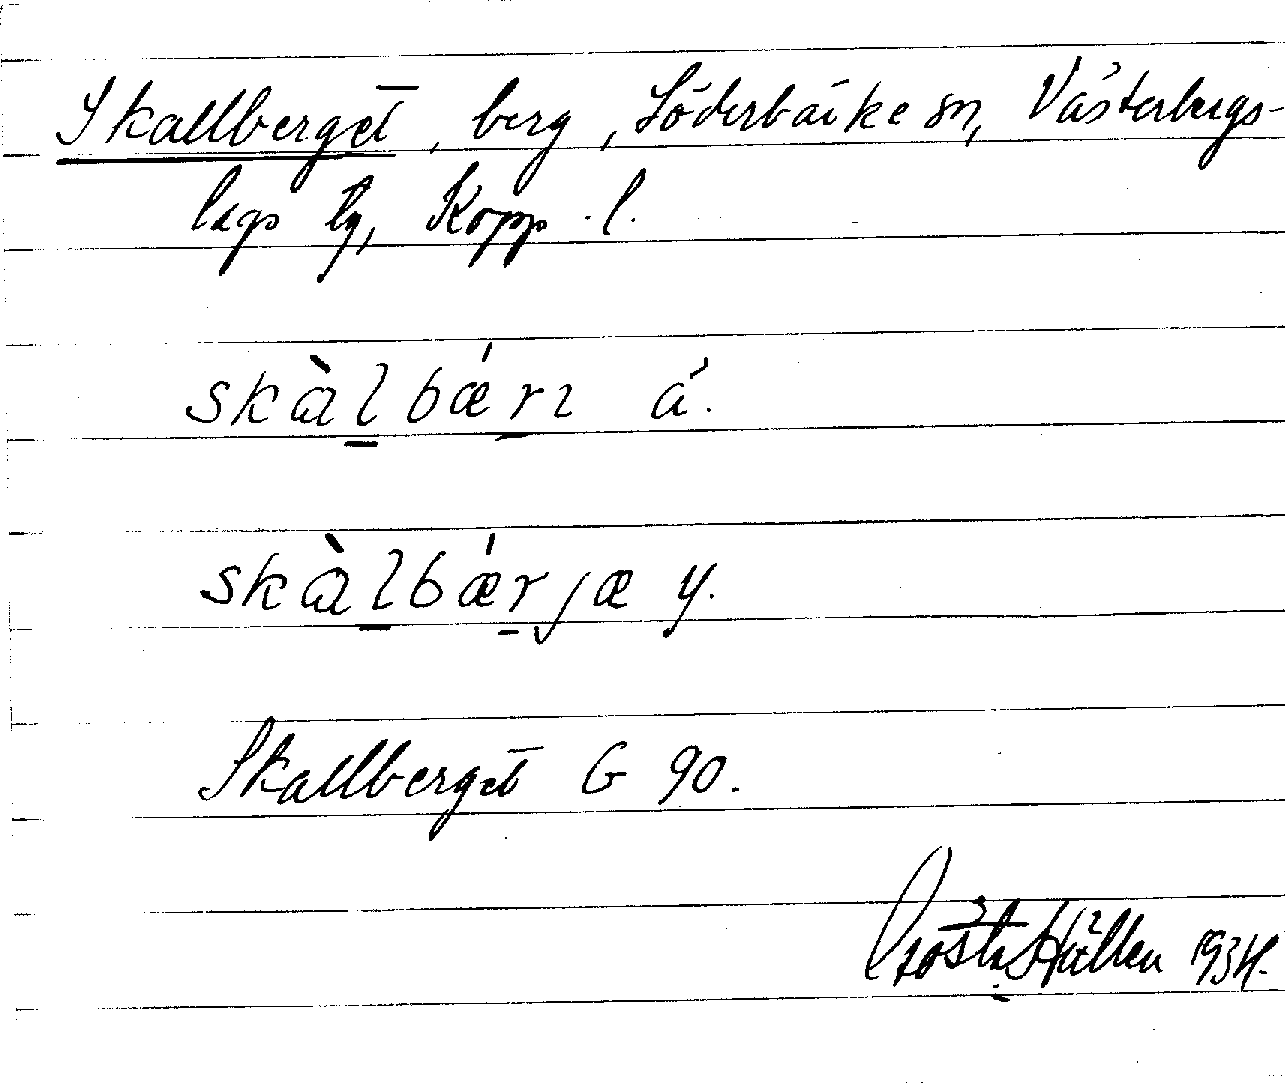 Skallberget, berg, Söderbärke sn, Västerbergs-
lags tg, Kopp. l.
skàlbǽrı á.
skàlbǽrjæ y.
Skallberget G 90.
Gösta Hällen 1934.